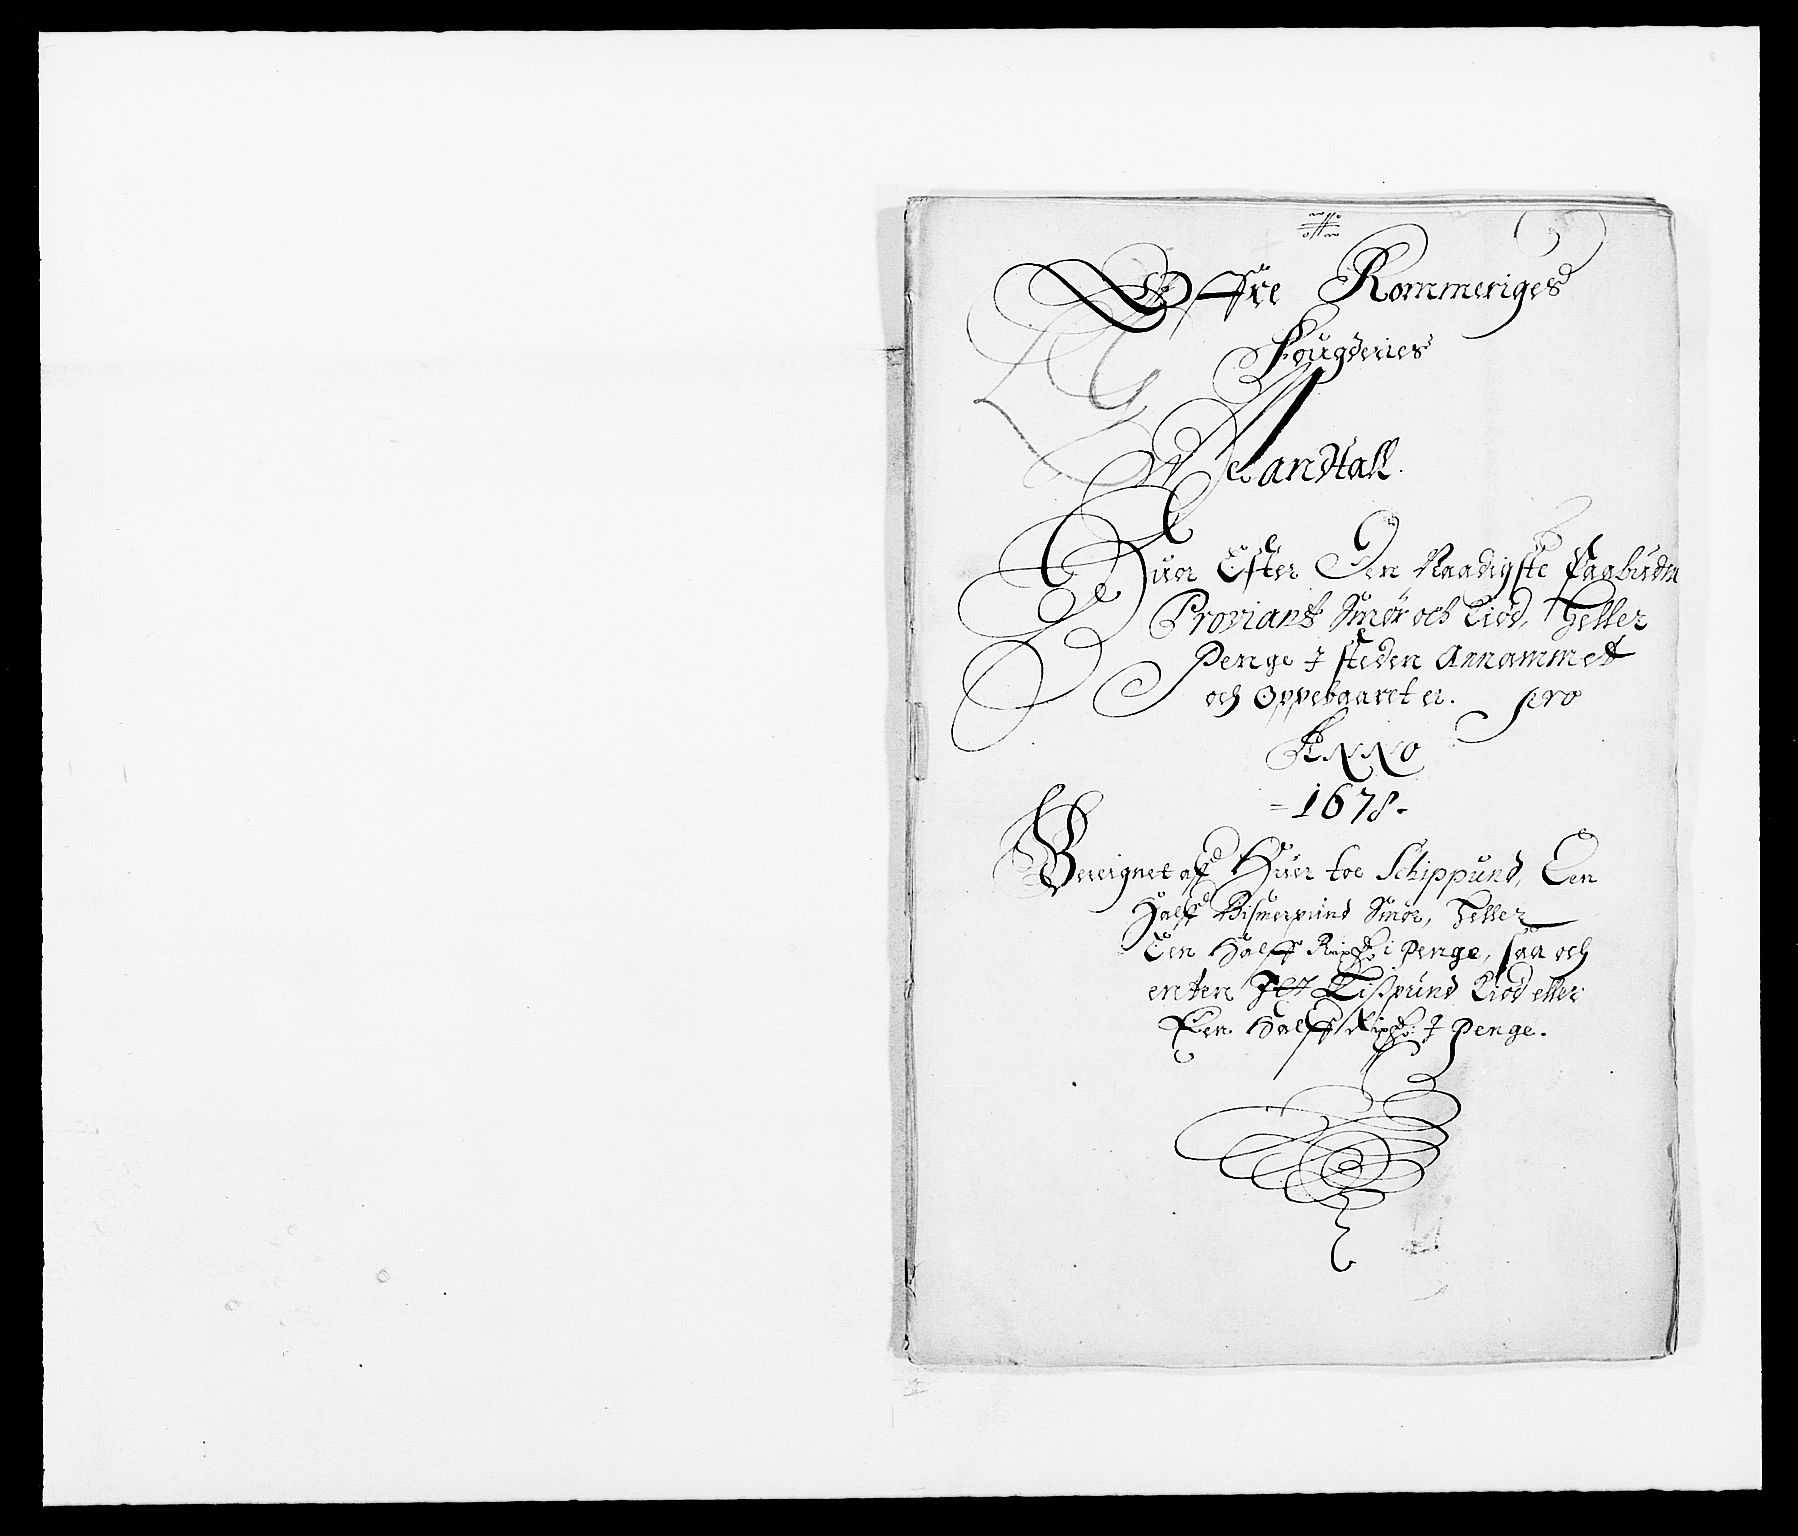 Öffre Rommeriges
Fougderies
Mandtall.
Huor Efter Den Naadigste Paabudne
Proviant Smör och Kiöd, Heller
Penge I steden Annammet
och Oppebaaret er. pro
ANNO
=1678.
Bereignet aff Huer toe Schippund, Een
Halff Bismerpund Smör, Heller
Een Halff Rixdr. i Penge, saa och
enten Jet Lißpund Kiöd eller
Een Halff Rixdr. I Penge.